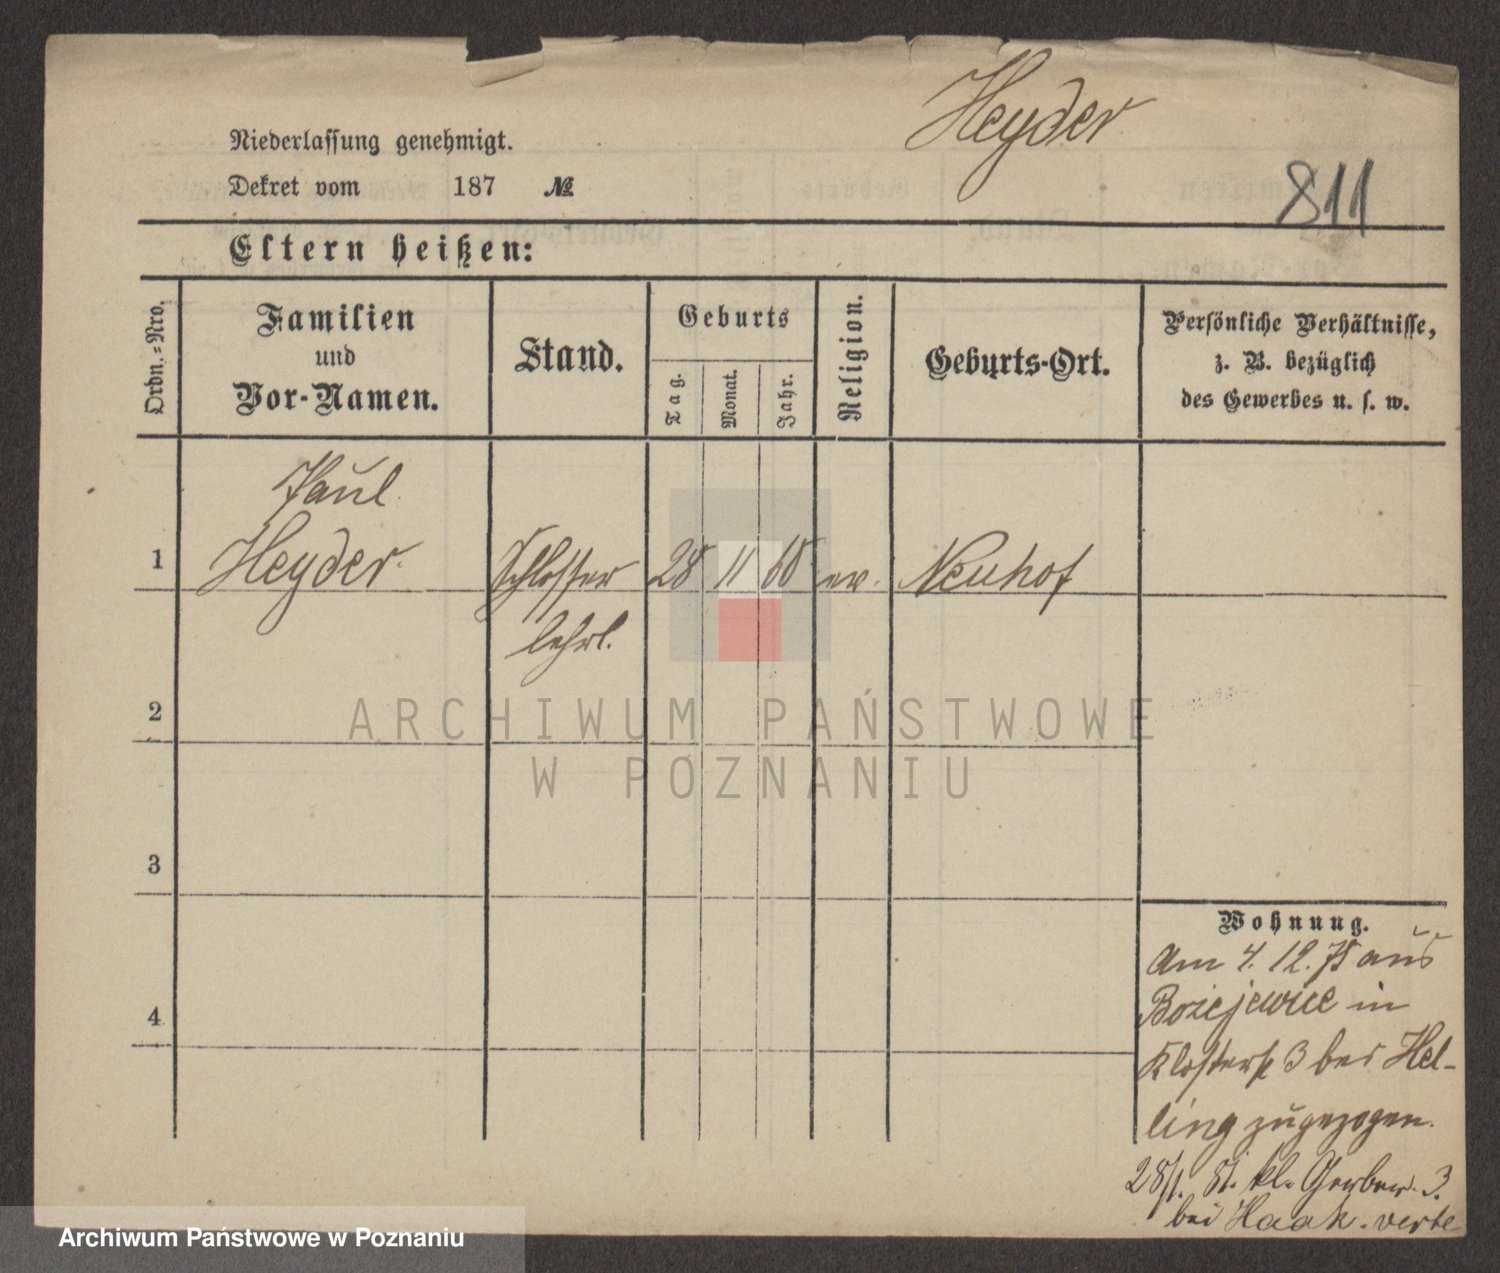 Heyder
811
Niederlassung genehmigt.
Dekret vom 187 №
Eltern heißen:
Ordn.-Nro.
Familien und Vor-Namen.
Stand.
Geburts
Tag.
Monat.
Jahr.
Religion.
Geburts-Ort.
Persönliche Verhältnisse,
z. B. bezüglich
des Gewerbes u. s. w.
Paul
1 Heyder Schlosser 28 11 60 ev. Neuhof
lehrl.
2
3
4
Wohnung.
Am 4. 12. 78 aus
Bozejewice in
Klosterst 3 bei Hel-
ling zugezogen.
28/1. 81. kl. Gerber. 3.
bei Haak. verte
ARCHIWUM PAŃSTWOWE
W POZNANIU
Archiwum Państwowe w Poznaniu